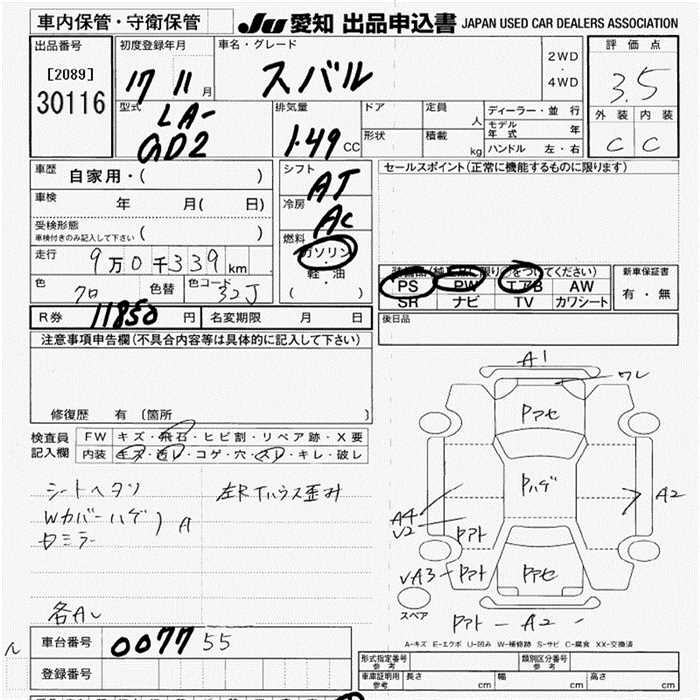 車内保管・守衛保管 Ju 愛知 出品申込書 JAPAN USED CAR DEALERS ASSOCIATION
出品番号 初度登録年月 車名・グレード 評価点
[2089] 17 11 月 スバル 2WD・4WD 3.5
30116
型式 排気量 ドア 定員 人 ディーラー・並行 外装 内装
LA-GD2 1.49 CC 形状 積載 kg モデル年式 年 C C
ハンドル 左・右
車歴 自家用・( ) シフト AT セールスポイント(正常に機能するものに限ります)
車検 年 月( 日) 冷房 AC
受検形態 車検付きのみ記入して下さい ( ) 燃料 ガソリン・軽油 ( )
走行 9万0千339km 装備品(純正品に限り○をつけてください) 新車保証書
色 クロ 色替 色コード 32J PS PW エアB AW 有・無
SR ナビ TV カワシート
R券 11850 円 名変期限 月 日 後日品
注意事項申告欄(不具合内容等は具体的に記入して下さい)
修復歴 有 〔箇所 〕
検査員記入欄 FW キズ・飛石・ヒビ割・リペア跡・X要
内装 キズ・汚レ・コゲ・穴・スレ・キレ・破レ
シートヘタリ
Wカバーハゲ A
日ミラー
左RTハウス歪み
各Aレ
A1
ワレ
Pアセ
Pハゲ
A4
V2
A2
Pアト
VA3
Pアト
Pアセ
Pアト
スペア
Pアト - A2 -
A-キズ E-エクボ U-凹み W-補修跡 S-サビ C-腐食 XX-交換済
車台番号 007755
登録番号
形式指定番号 参考 類別区分番号 参考
車庫証明用 参考 長さ cm 幅 cm 高さ cm